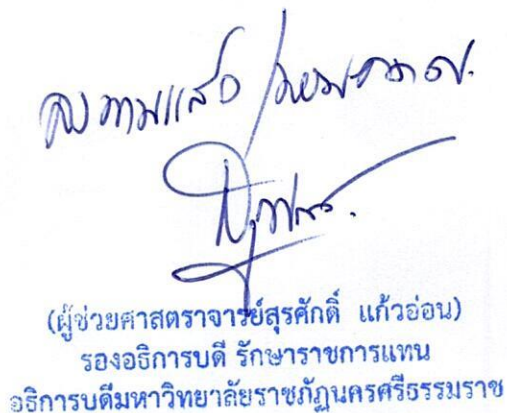 ลงนามแล้ว
(ผู้ช่วยศาสตราจารย์สุรศักดิ์ แก้วอ่อน)
รองอธิการบดี รักษาราชการแทน
อธิการบดีมหาวิทยาลัยราชภัฏนครศรีธรรมราช